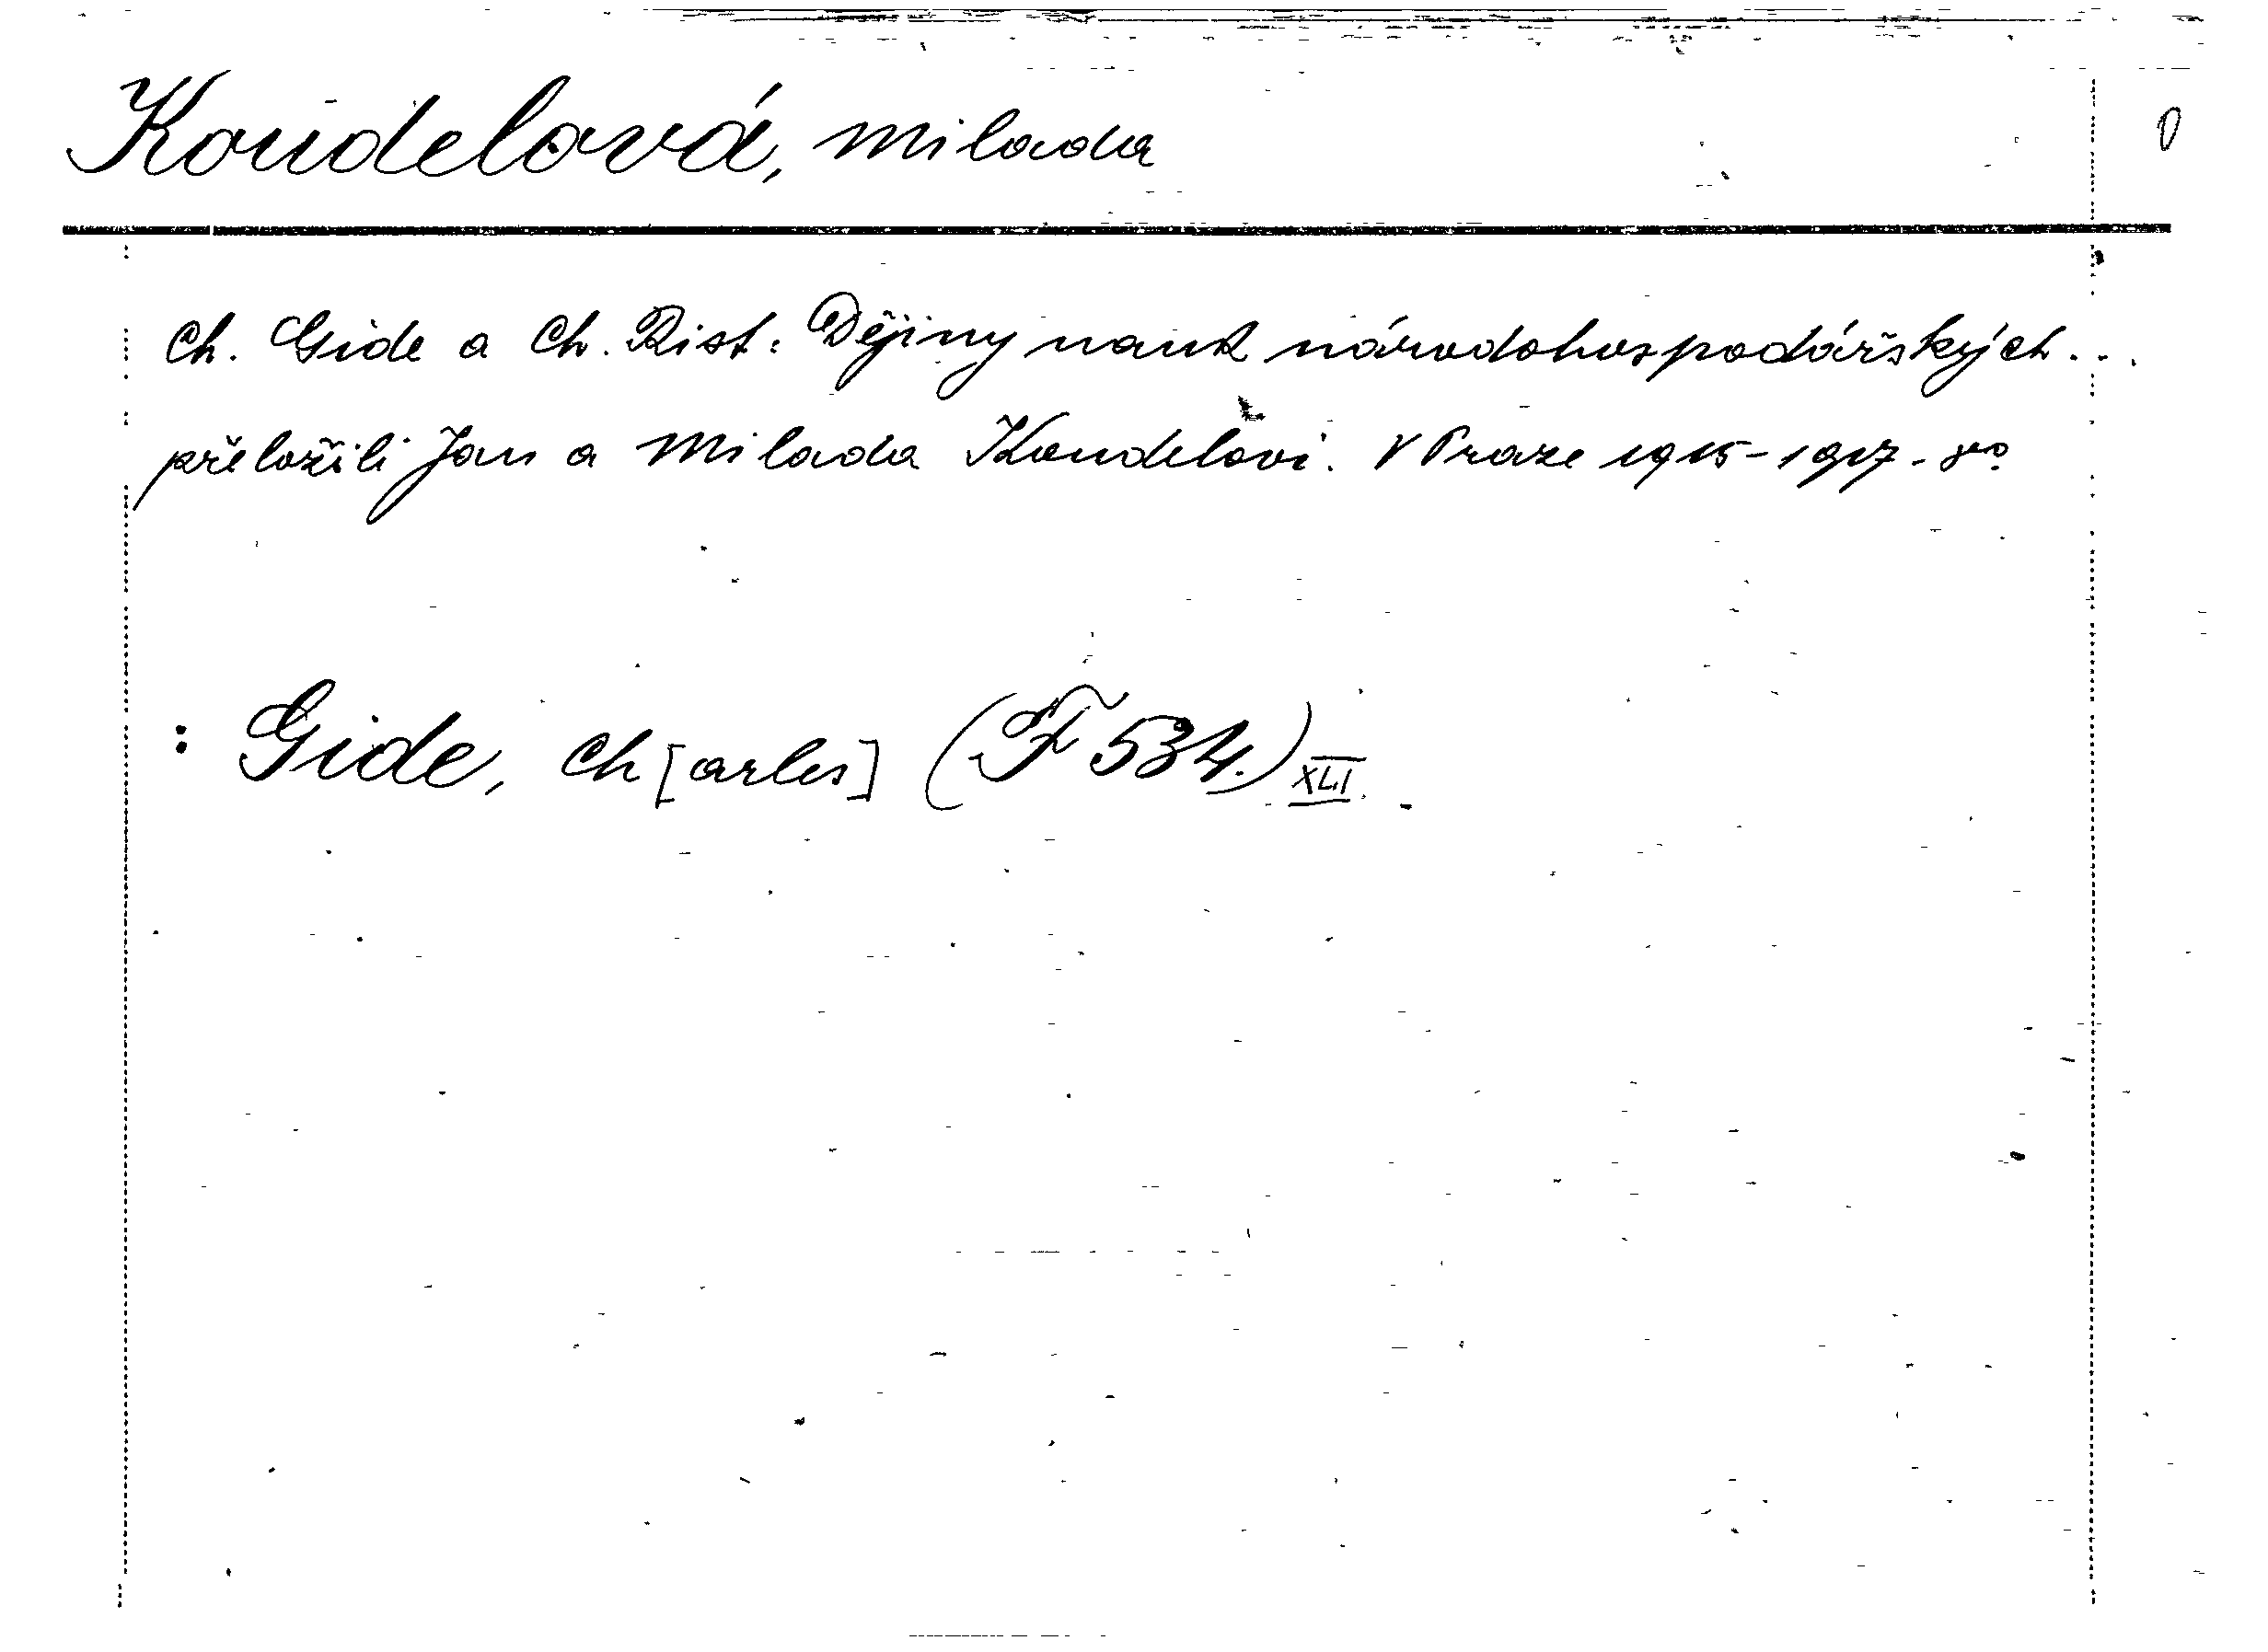 Koudelová, Milada 0
Ch. Gide a Ch. Rist: Dějiny nauk národohospodářských...
přeložili Jan a Milada Koudelovi. V Praze 1915-1917. 8°.
: Gide, Ch[arles] (F 534.) XLI.